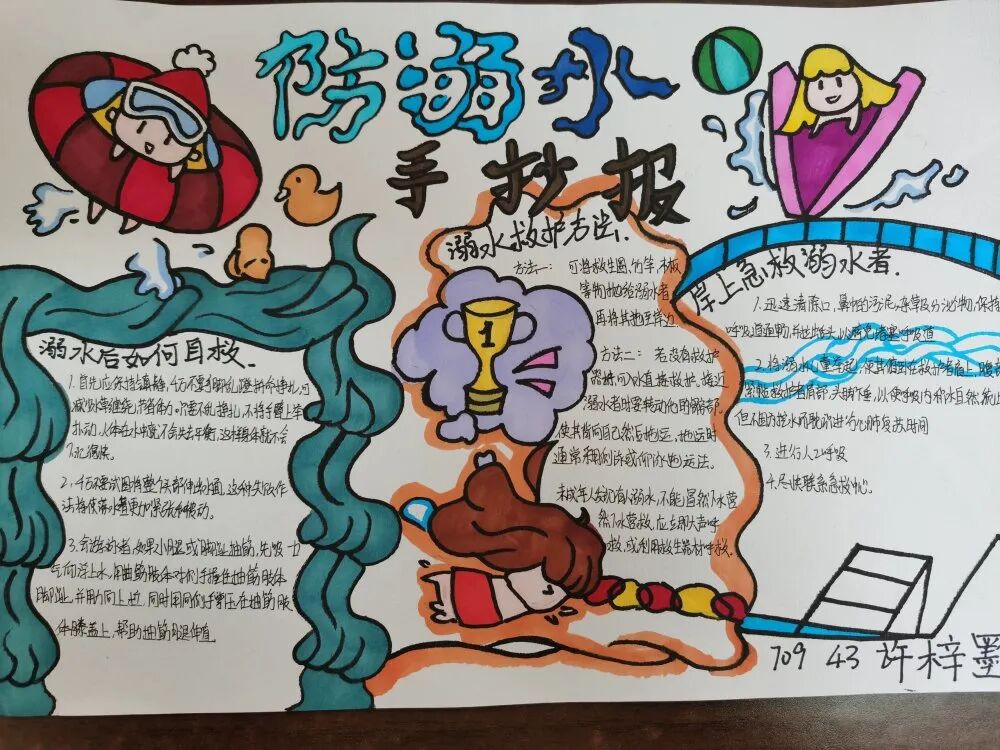 防溺水
手抄报
溺水后如何自救.
1. 首先应保持镇静,千万不要手脚乱蹬拼命挣扎,可
减少水草缠绕,节省体力。只要不乱挣扎,不将手臂上举
扑动,人体在水中就不会失去平衡,这样身体就不会
2. 千万不要试图将整个头部伸出水面,这种
法将使落水者更加紧张和被动。
3. 会游泳者,如果小腿或脚趾抽筋,先吸一口
气仰浮上水,用抽筋肢体对侧手握住抽筋肢体
脚趾,并用力向上拉,同时用同侧手掌压在抽筋肢
体膝盖上,帮助抽筋腿伸直
溺水救护方法.
方法一: 可将救生圈、竹竿、木板
等物抛给溺水者,
再将其拖至岸边
方法二: 若没有救护
器材,可入水直接救护。接近
溺水者时要转动他的髋部,
使其背向自己然后拖运。拖运时
通常采用侧泳或仰泳拖运法。
未成年人发现有人溺水,不能冒然下水营
救,应立即大声呼
救,或利用救生器材呼救。
岸上急救溺水者.
1. 迅速清除口、鼻中的污泥、杂草及分泌物,保持
呼吸道通畅,并拉出舌头,以避免堵塞呼吸道
2. 将溺水者举起,使其俯卧在救护者肩上,腹部
紧贴救护者肩部,头脚下垂,以使呼吸内积水自然流出
但不要因为控水而耽误进行心肺复苏时间
3. 进行人工呼吸
4. 尽快联系急救中心。
709 43 许梓墨